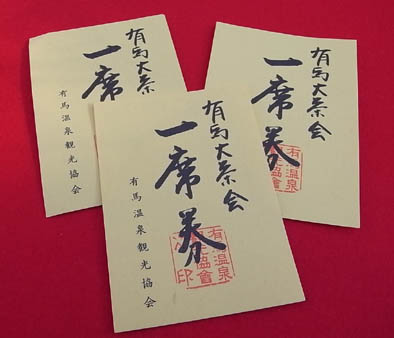 有馬大茶
一席
有馬温泉観光協会
有馬大茶会
一席券
有温泉
協會
有馬大茶会
一席券
有馬温泉観光協会
有温泉
協會
印